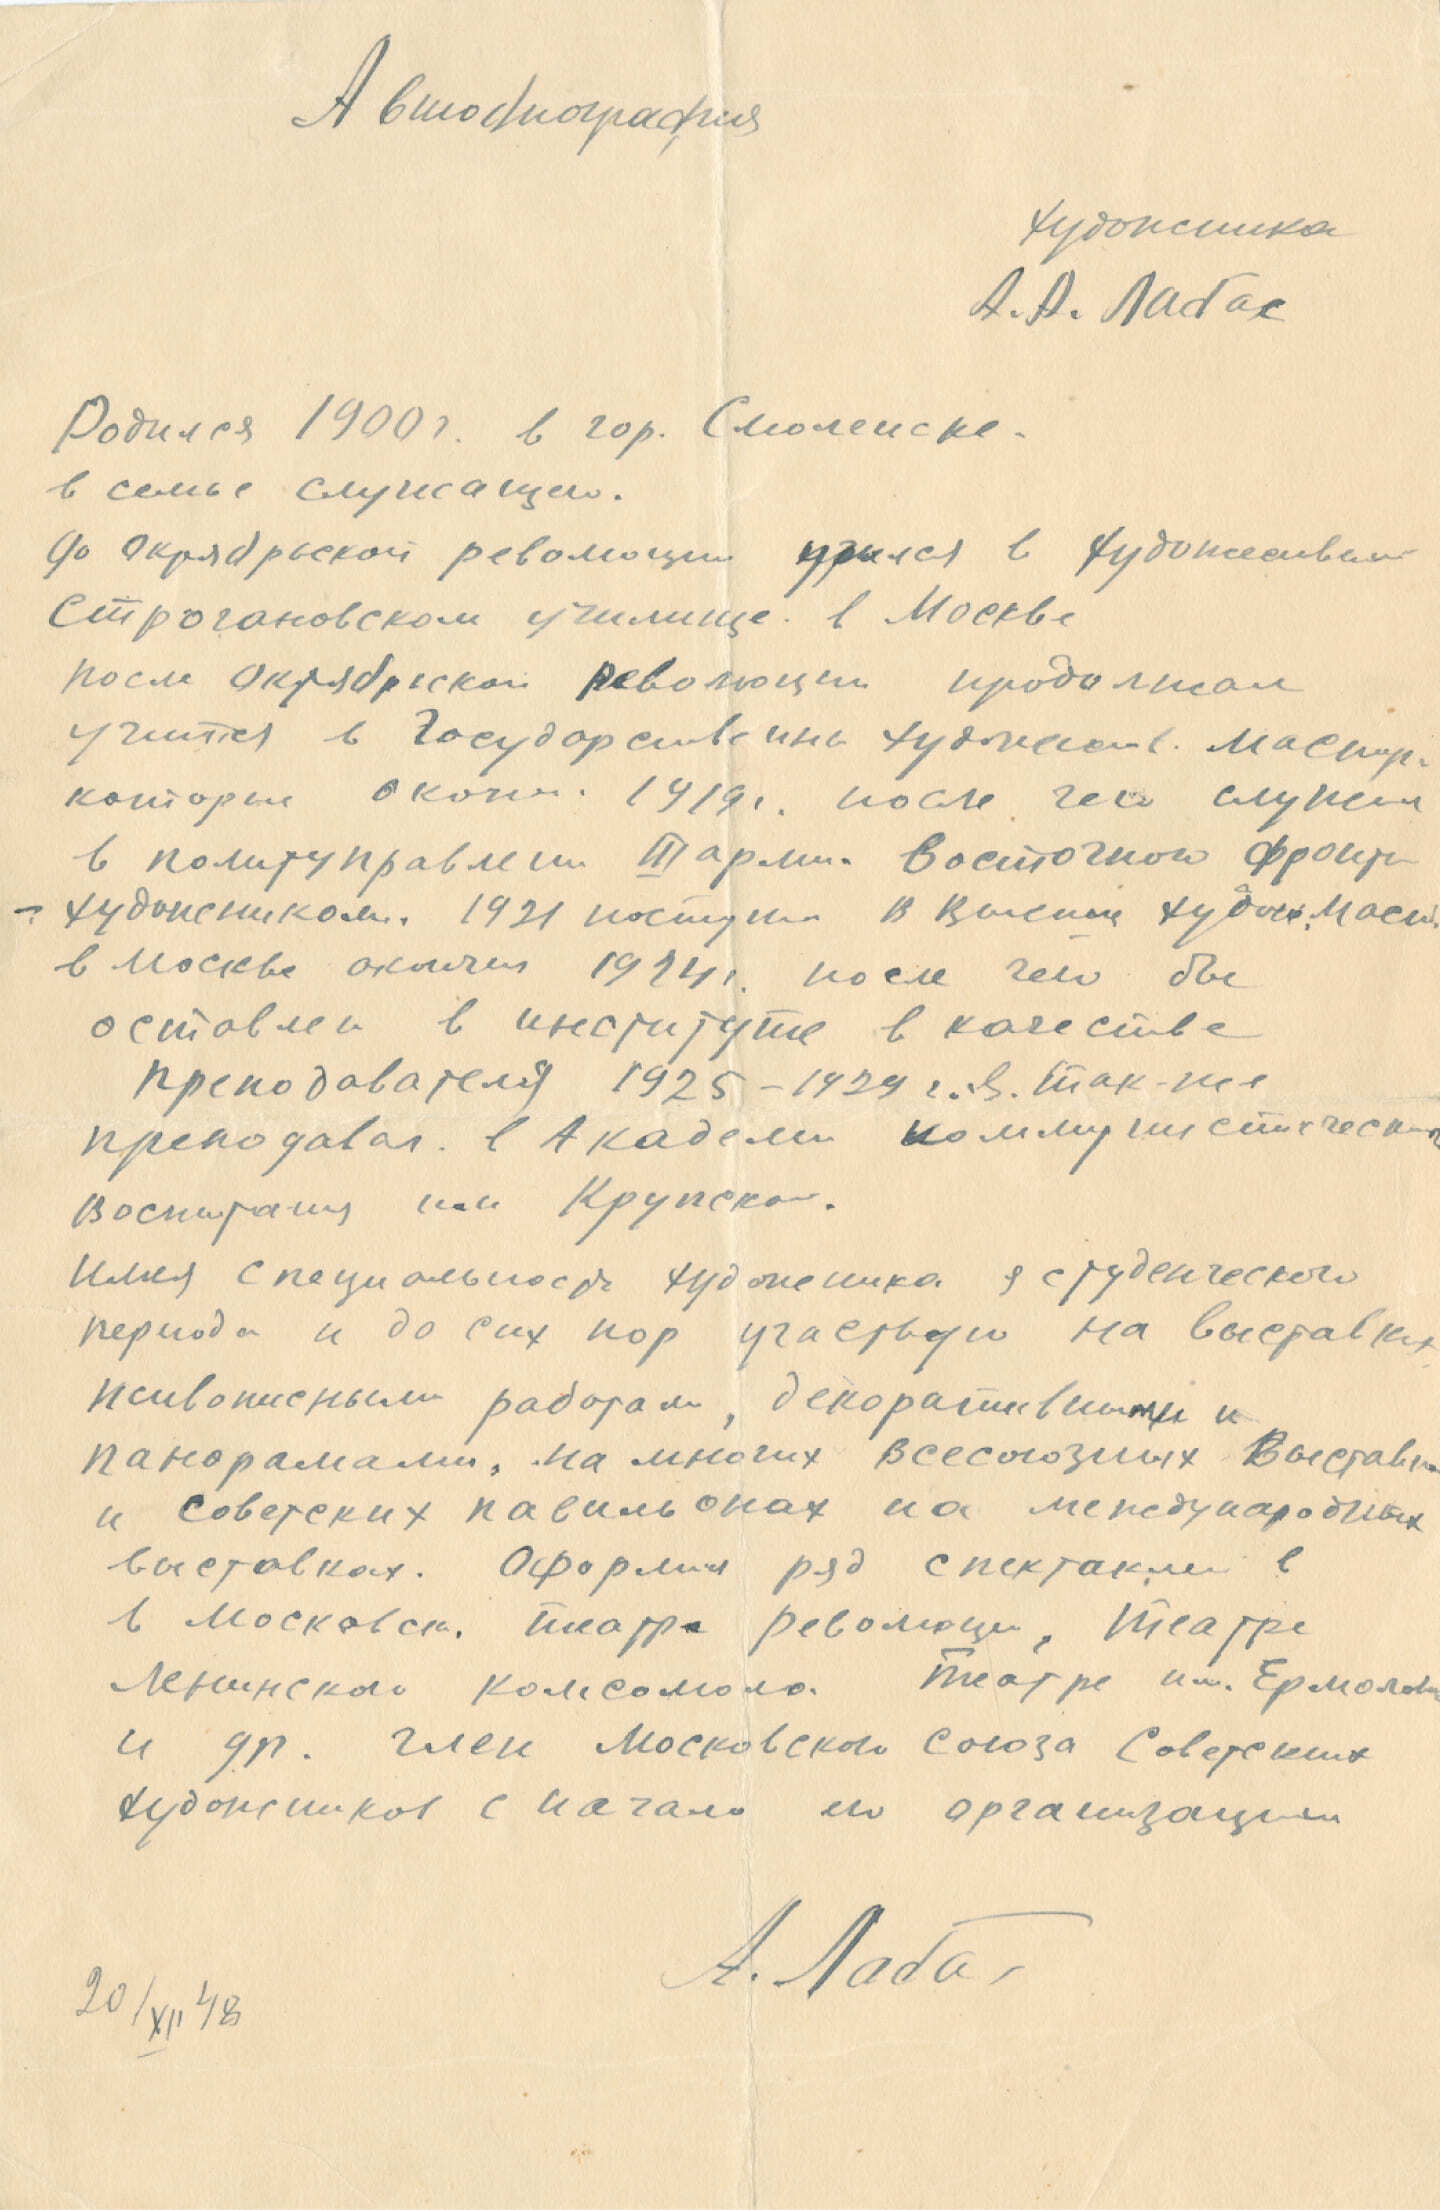 Автобиография
художника
А. А. Лабас
Родился 1900 г. в гор. Смоленске.
в семье служащего.
До Октябрьской революции учился в Художественном
Строгановском училище. в Москве
после Октябрьской революции продолжал
учится в Государственных художеств. мастер.
которые окончил. 1919 г. после чего служил
в политуправлении III армии. Восточного фронта
художником. 1921 поступил в Высшие худож. Маст.
в Москве окончил 1924 г. после чего был
оставлен в институте в качестве
преподавателя 1925 – 1929 г. Так-же
преподавал. в Академии коммунистического
воспитания им Крупской.
Имея специальность художника я студенческого
периода и до сих пор участвую на выставках
живописными работами, декоративными и
панорамами, на многих всесоюзных Выставках
и советских павильонах на международных
выставках. Оформил ряд спектаклей в
в Московск. театре Революции, театре
Ленинского комсомола. театре им. Ермоловой
и др. член Московского союза Советских
художников с начала его организации
А. Лабас
20/XII 48